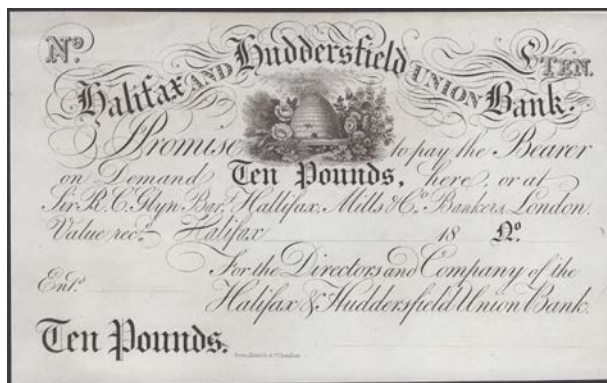 No. £TEN.
Halifax AND Huddersfield UNION Bank.
I Promise to pay the Bearer
on Demand Ten Pounds, here, or at
Sir R. C. Glyn Bart. Hallifax, Mills & Co. Bankers, London.
Value recd. Halifax 18 No.
For the Directors and Company of the
Entd. Halifax & Huddersfield Union Bank.
Ten Pounds.